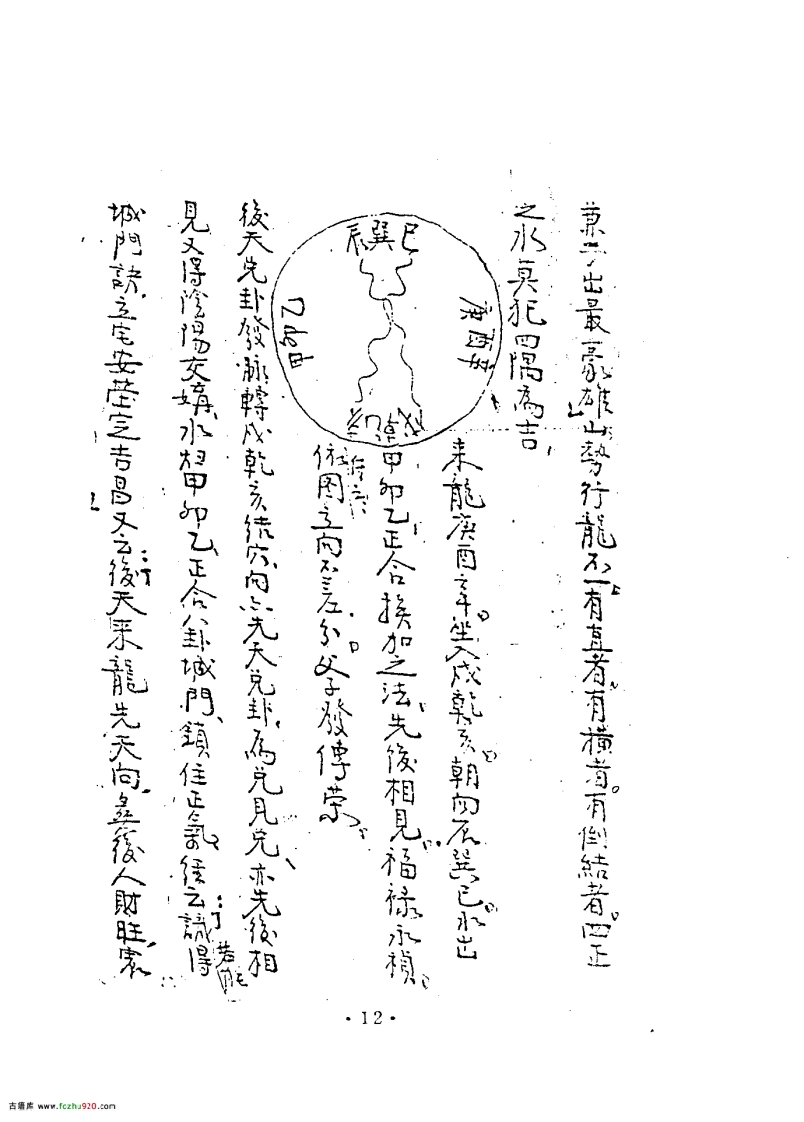 兼子出最豪雄山勢行龍不一有直者有橫者有倒結者四正
之水莫犯四隅為吉
辰巽巳
庚酉辛
乙卯甲
戌乾亥
来龍庚酉辛坐入戌乾亥朝向辰巽巳水出
甲卯乙正合挨加之法先後相見福祿永禎
依图立向不差分父子發傳荣
後天兑卦發脉轉戌乾亥结穴向亦先天兑卦為兑見兑亦先後相
見又得陰陽交媾水招甲卯乙正合八卦城門鎖住正氣經云識得
若能
城門訣立宅安莹定吉昌又云後天来龍先天向益後人財旺
·12·
古籍库 www.fczhu920.com